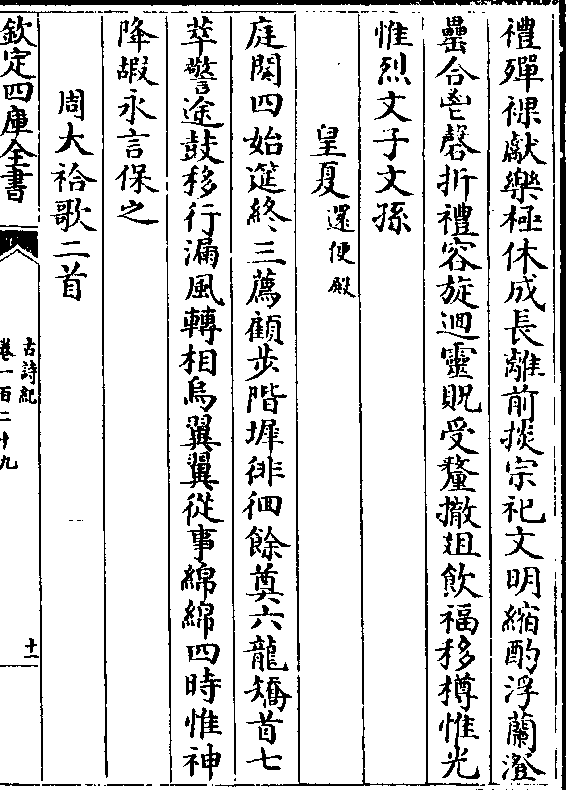 禮殫祼獻樂極休成長離前掞宗祀文明縮酌浮蘭澄
罍合鬯磬折禮容旋迴靈貺受釐撤俎飲福移樽惟光
惟烈文子文孫
皇夏還便殿
庭闋四始筵終三薦顧步階墀徘徊餘奠六龍矯首七
萃警途鼓移行漏風轉相烏翼翼從事綿綿四時惟神
降嘏永言保之
周大祫歌二首
欽定四庫全書
古詩紀
卷一百二十九
十一